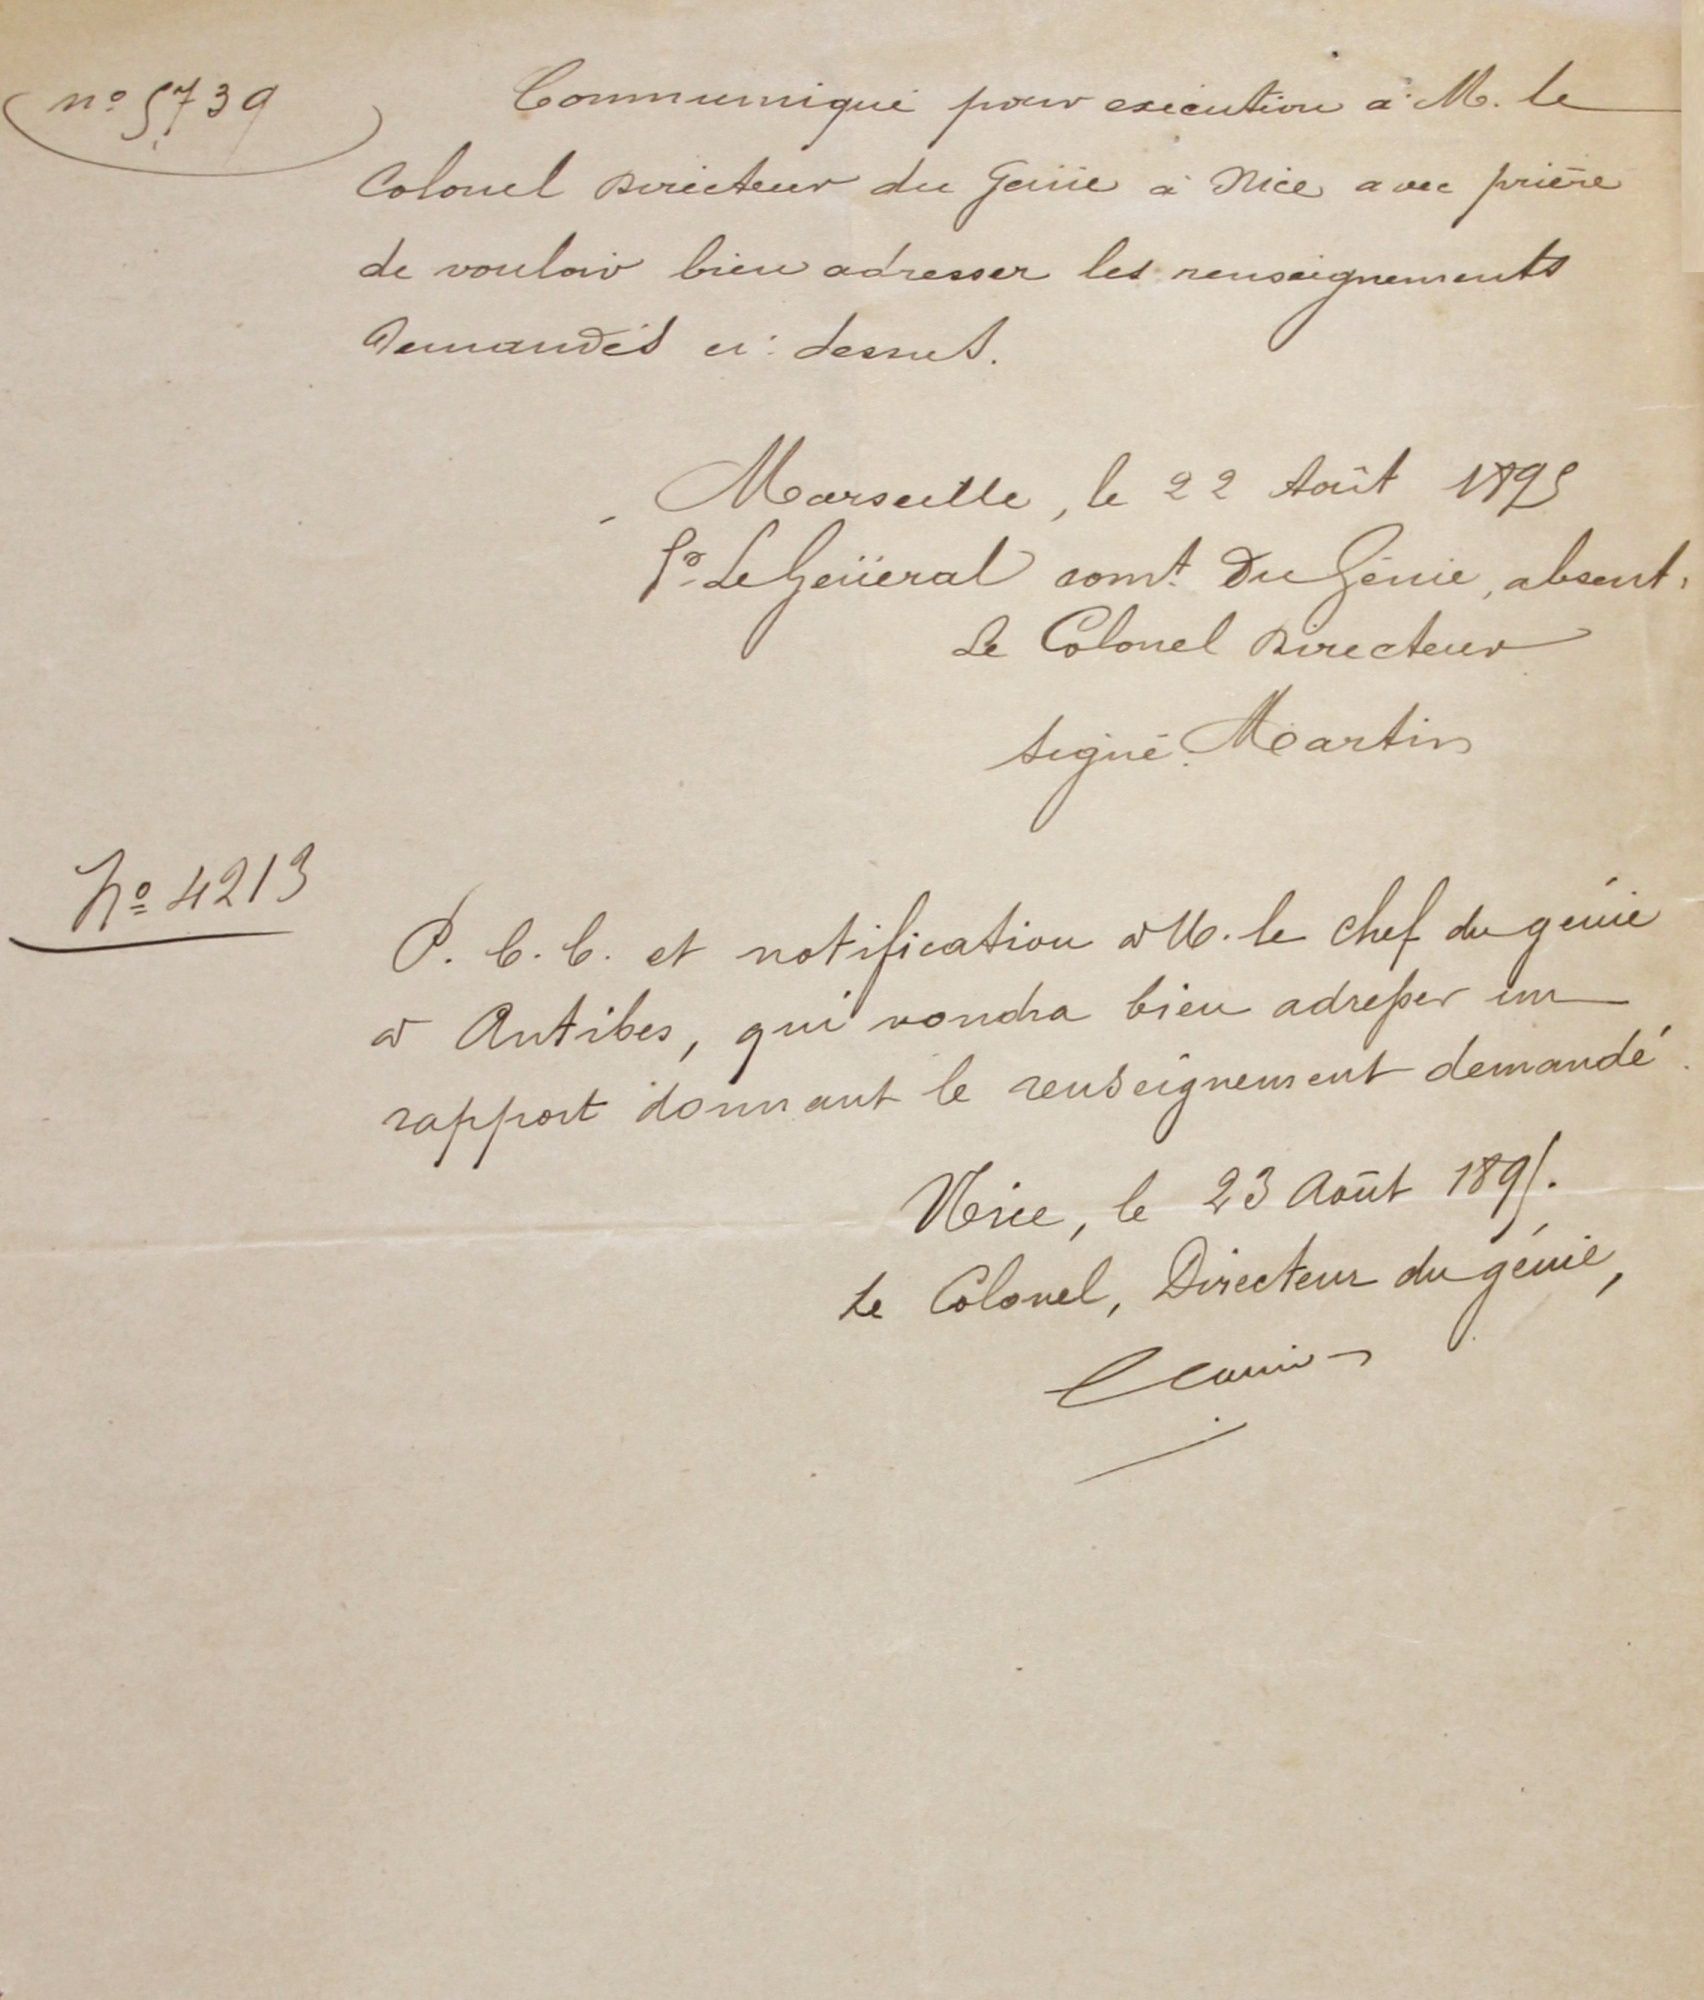 nº 5739
Communiqué pour exécution à M. le
Colonel Directeur du Génie à Nice avec prière
de vouloir bien adresser les renseignements
demandés ci-dessus.
Marseille, le 22 Août 1895
Pº Le Général comt du Génie, absent.
Le Colonel Directeur
signé Martin
Nº 4213
P. C. C. et notification à M. le chef du génie
à Antibes, qui voudra bien adresser un
rapport donnant le renseignement demandé.
Nice, le 23 Août 1895.
Le Colonel, Directeur du génie,